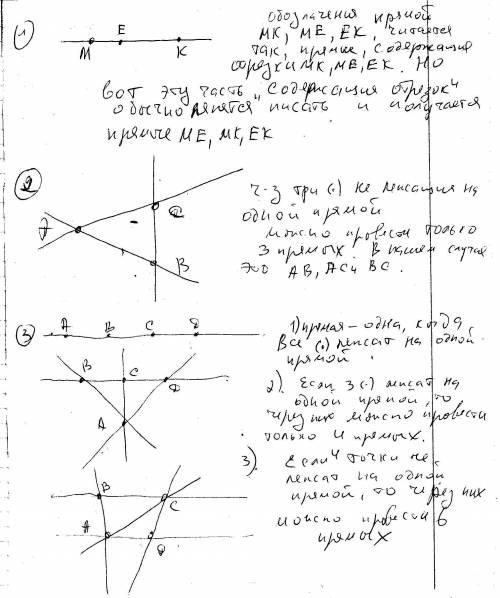 1
обозначения прямой
МК, МЕ, ЕК, читается
так, прямые, содержащие
отрезки МК, МЕ, ЕК. Но
вот эту часть "содержащия отрезок"
обычно писать и получается
прямые МЕ, МК, ЕК
M E K
2
A C B
ч-з три (·) не лежащия на
одной прямой
можно провести только
3 прямых. В нашем случае
это АВ, АС и ВС.
3
A B C D
1) прямая – одна, когда
все (·) лежат на одной
прямой.
B C D
A
2). Если 3 (·) лежат на
одной прямой, то
через них можно провести
только 4 прямых.
3).
Если 4 точки не
лежат на одной
прямой, то через них
можно провести 6
прямых
B C
A D